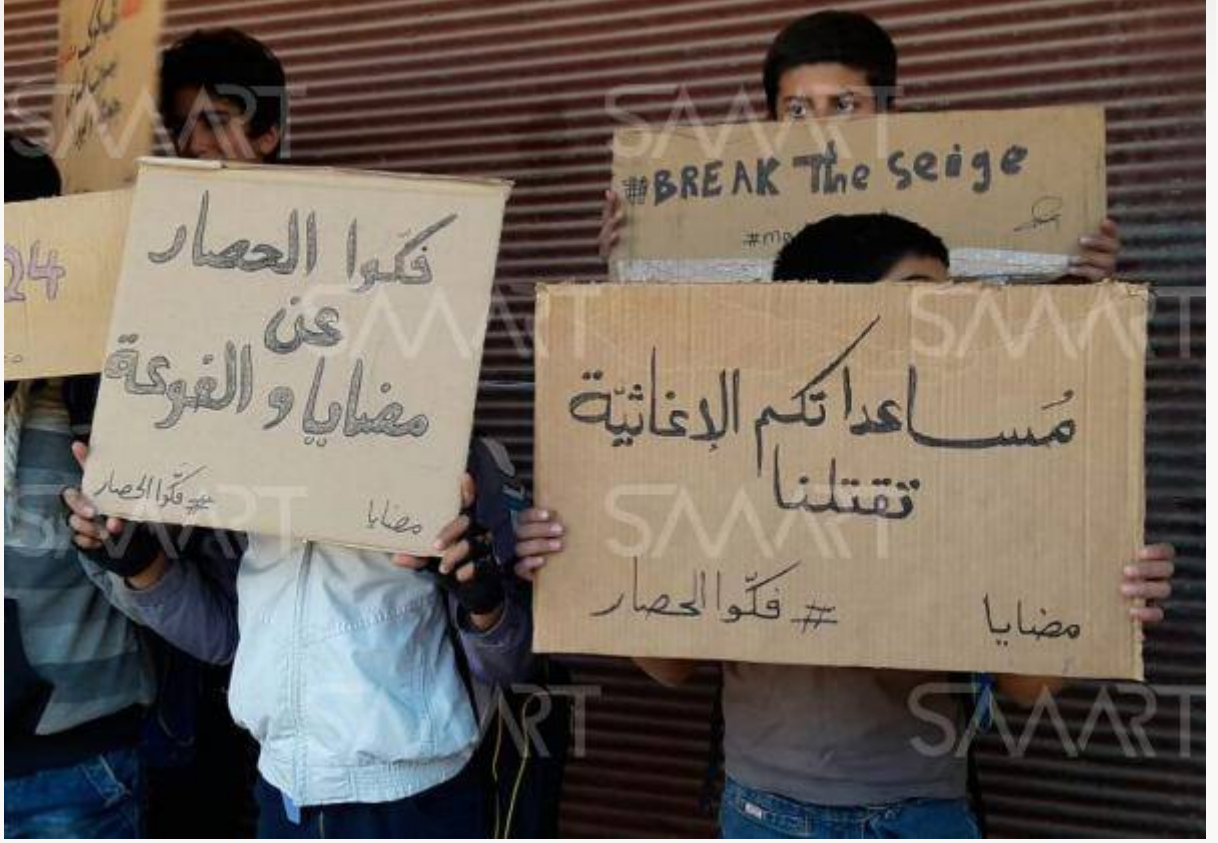 فكّوا الحصار
عن
مضايا و الفوعة
# فكّوا الحصار
مضايا
24
#BREAK The Seige
مُساعداتكم الإغاثيّة
تقتلنا
# فكّوا الحصار
مضايا
SMART